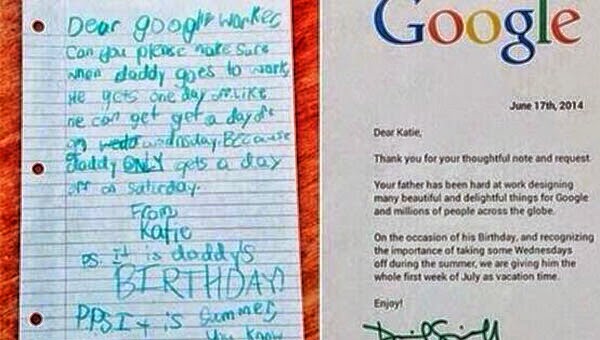 Dear google worker,
Can you please make sure
when daddy goes to work,
He gets one day off. Like
he can get get a day off
on wednesday. Because
daddy ONLY gets a day
off on saturday.
From,
Katie
P.S. It is daddy's
BIRTHDAY!
P.P.S It is summer,
you know
Google
June 17th, 2014
Dear Katie,
Thank you for your thoughtful note and request.
Your father has been hard at work designing
many beautiful and delightful things for Google
and millions of people across the globe.
On the occasion of his Birthday, and recognizing
the importance of taking some Wednesdays
off during the summer, we are giving him the
whole first week of July as vacation time.
Enjoy!